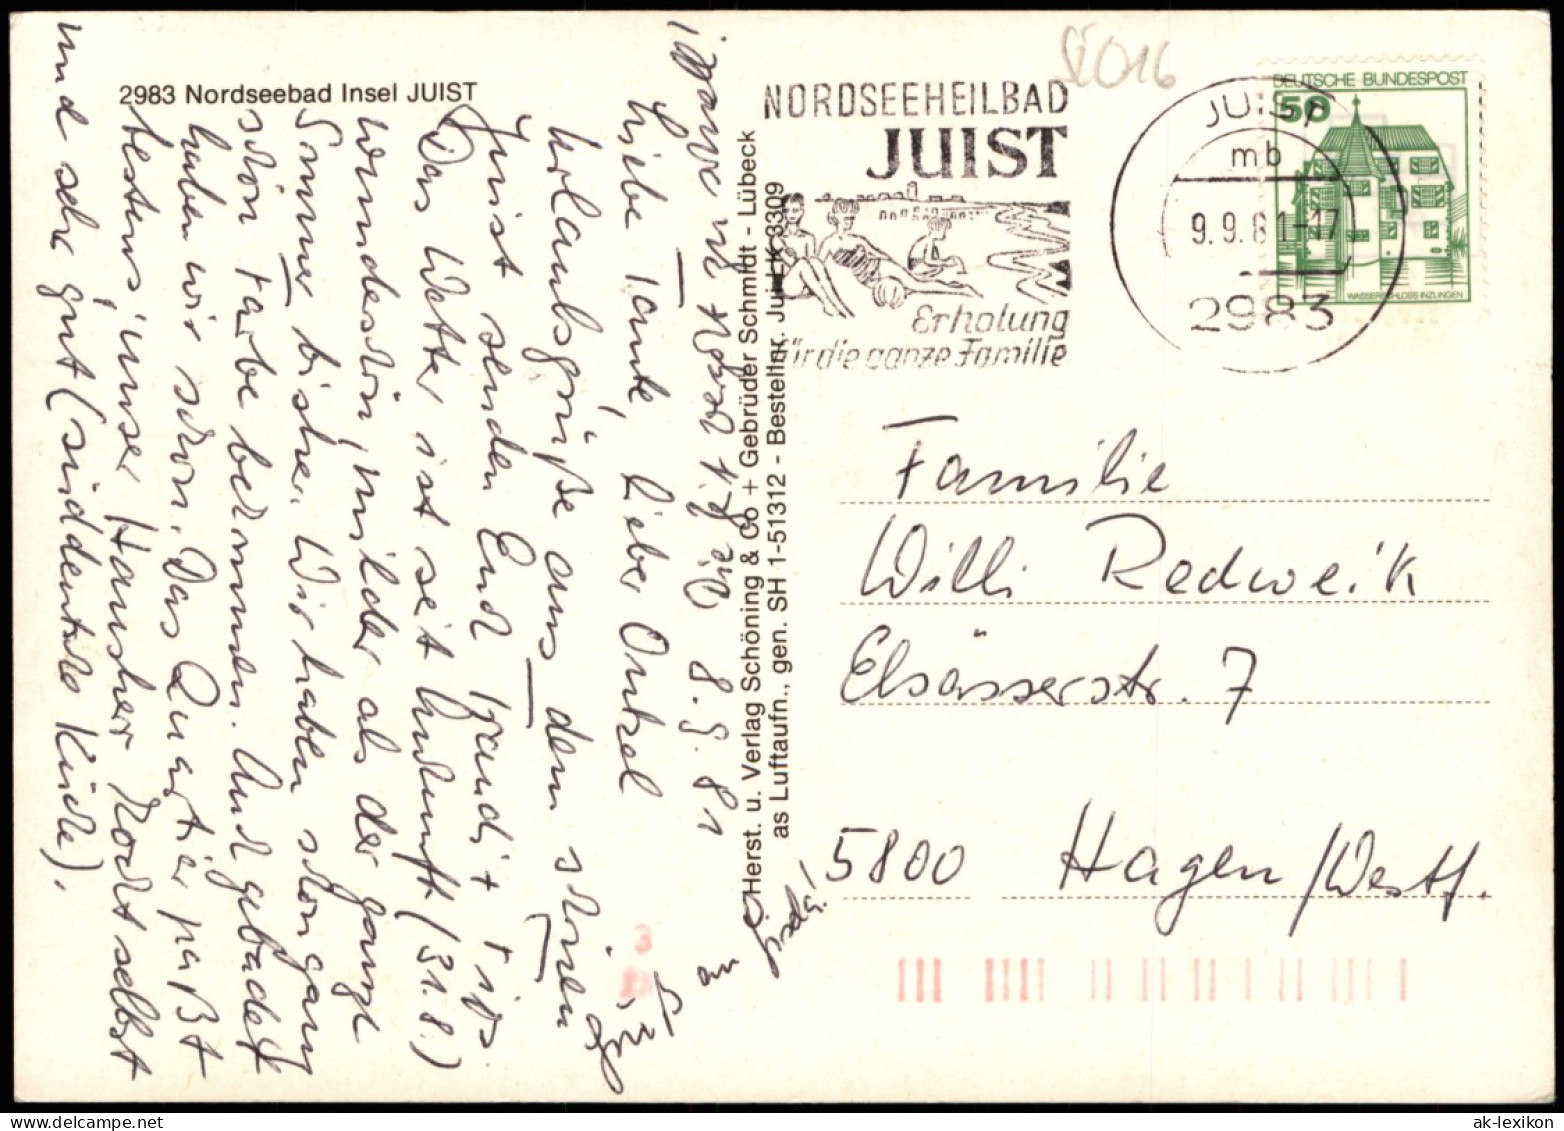 2983 Nordseebad Insel JUIST
8.9.81
Liebe Tante, lieber Onkel
Urlaubsgrüße aus dem schönen
Juist senden Euch
Das Wetter ist seit Ankunft (31.8.)
wunderschön, milder als der ganze
Sommer bisher. Wir haben schon ganz
schön Farbe bekommen. Auch gebadet
haben wir schon. Das Quartier paßt
bestens, unser Hausherr kocht selbst
und sehr gut (süddeutsche Küche).
Herst. u. Verlag Schöning & Co + Gebrüder Schmidt - Lübeck
as Luftaufn., gen. SH 1-51312 - Bestellnr. Jui LK 3309
NORDSEEHEILBAD
JUIST
Erholung
für die ganze Familie
JUIST
mb
9.9.81-17
2983
DEUTSCHE BUNDESPOST
50
WASSERSCHLOSS INZLINGEN
Familie
Willi Redweik
Elsässerstr. 7
5800 Hagen/Westf.
ak-lexikon